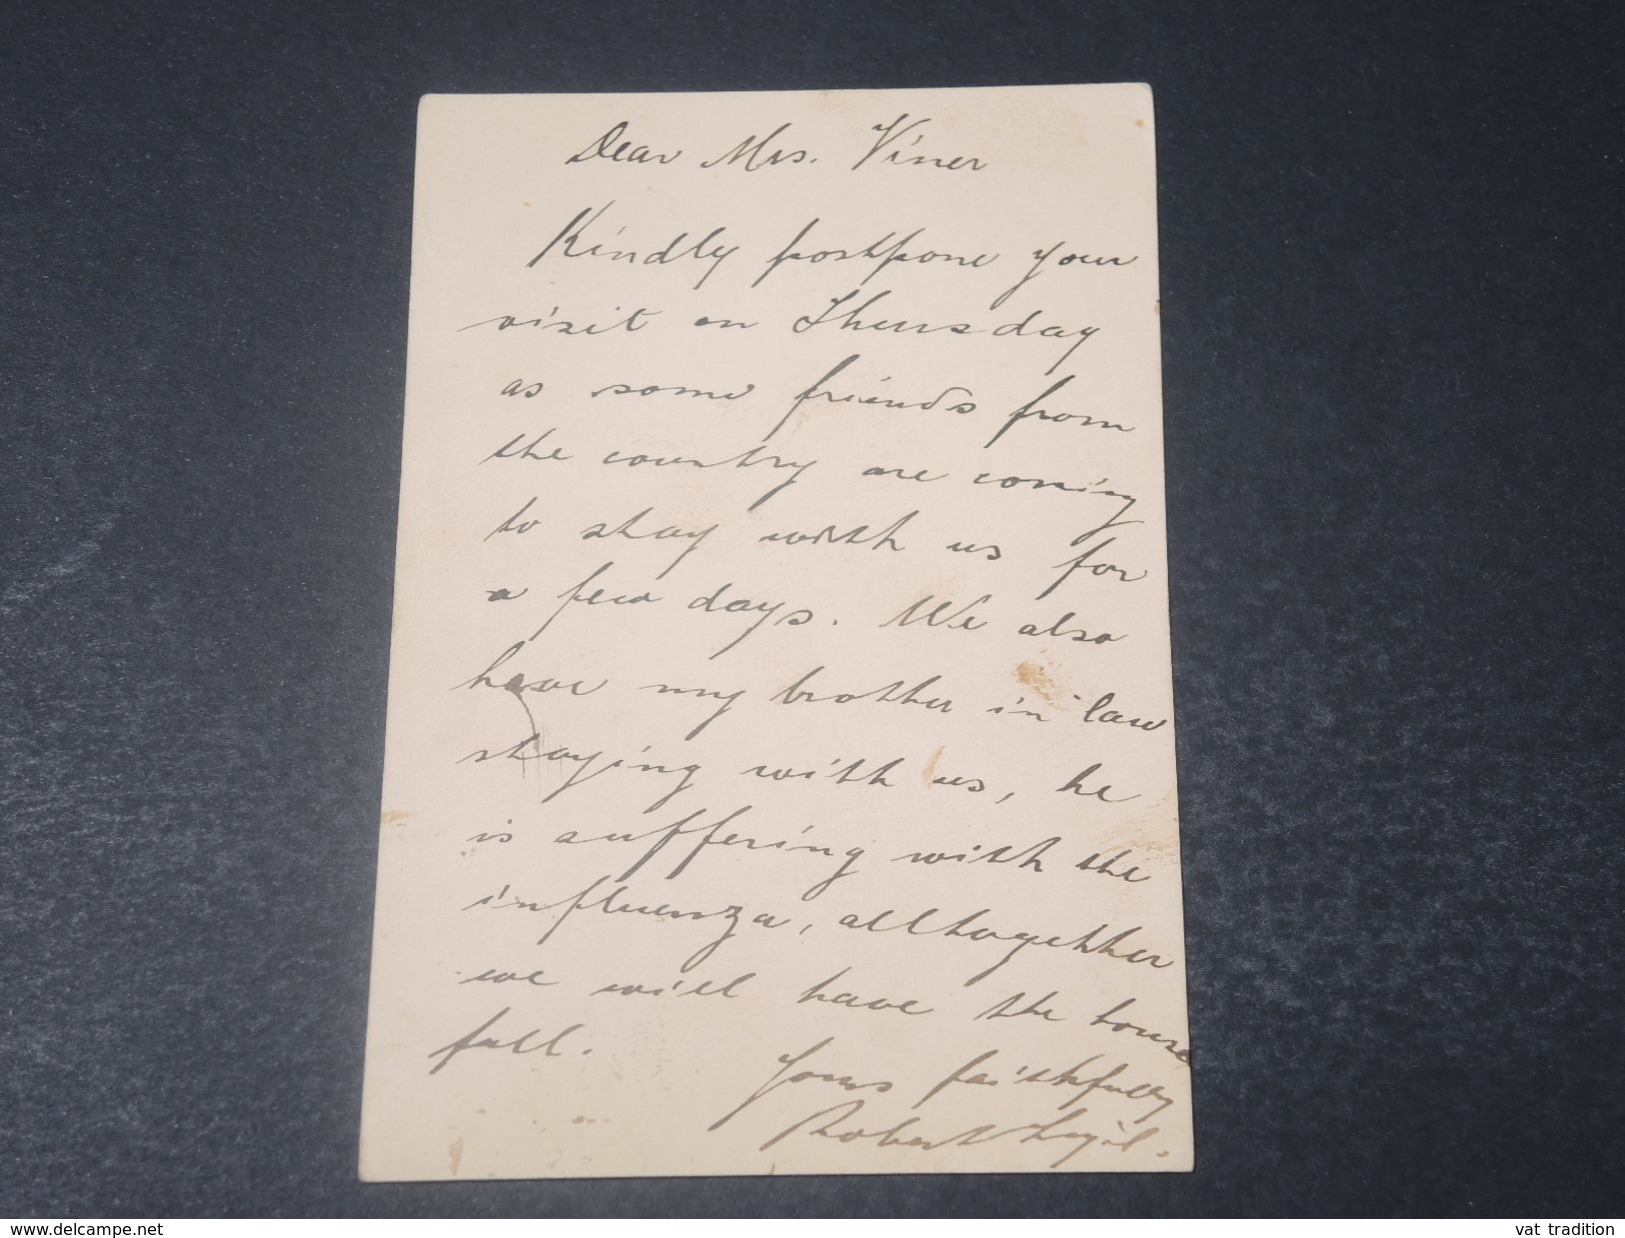 Dear Mrs. Viner
Kindly postpone your
visit on Thursday
as some friends from
the country are coming
to stay with us for
a few days. We also
have my brother in law
staying with us, he
is suffering with the
influenza, alltogether
we will have the house
full.
Yours faithfully
Robert
delcampe.net
vat_tradition